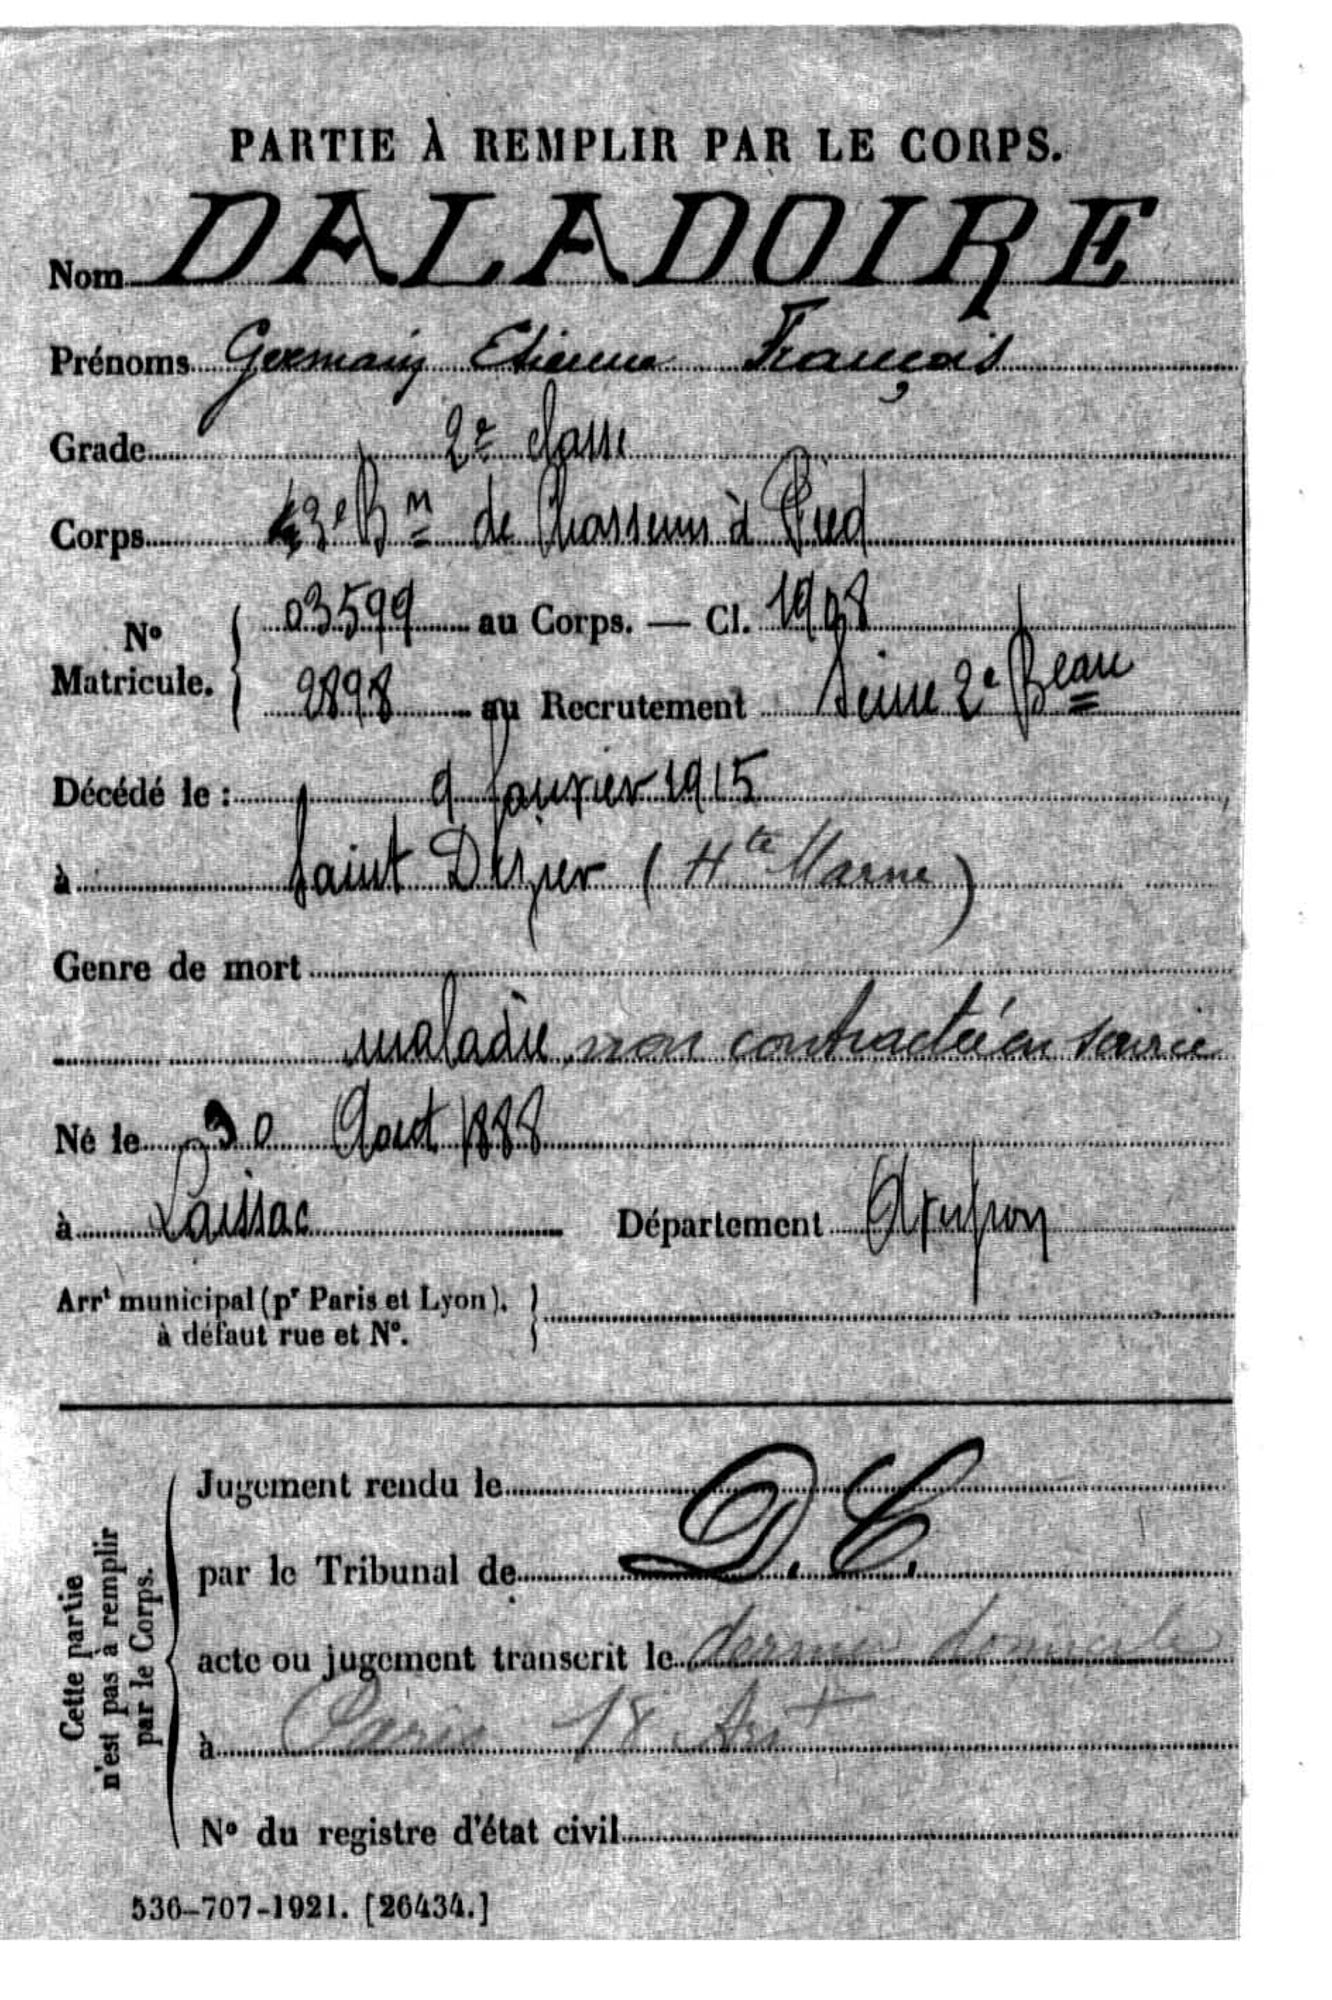 PARTIE À REMPLIR PAR LE CORPS.
Nom DALADOIRE
Prénoms Germain Etienne François
Grade 2e classe
Corps 43e Bn de Chasseurs à Pied
No Matricule. 03599 au Corps. — Cl. 1908
2898 au Recrutement Seine 2e Beau
Décédé le : 9 Janvier 1915
à Saint Dizier (Hte Marne)
Genre de mort
maladie non contractée en service
Né le 30 Aout 1888
à Laissac Département Aveyron
Arrt municipal (pr Paris et Lyon).
à défaut rue et No.
Cette partie
n'est pas à remplir
par le Corps.
Jugement rendu le
par le Tribunal de D. C.
acte ou jugement transcrit le dernier domicile
à Paris 18 Arrt
No du registre d'état civil
536-707-1921. [26434.]